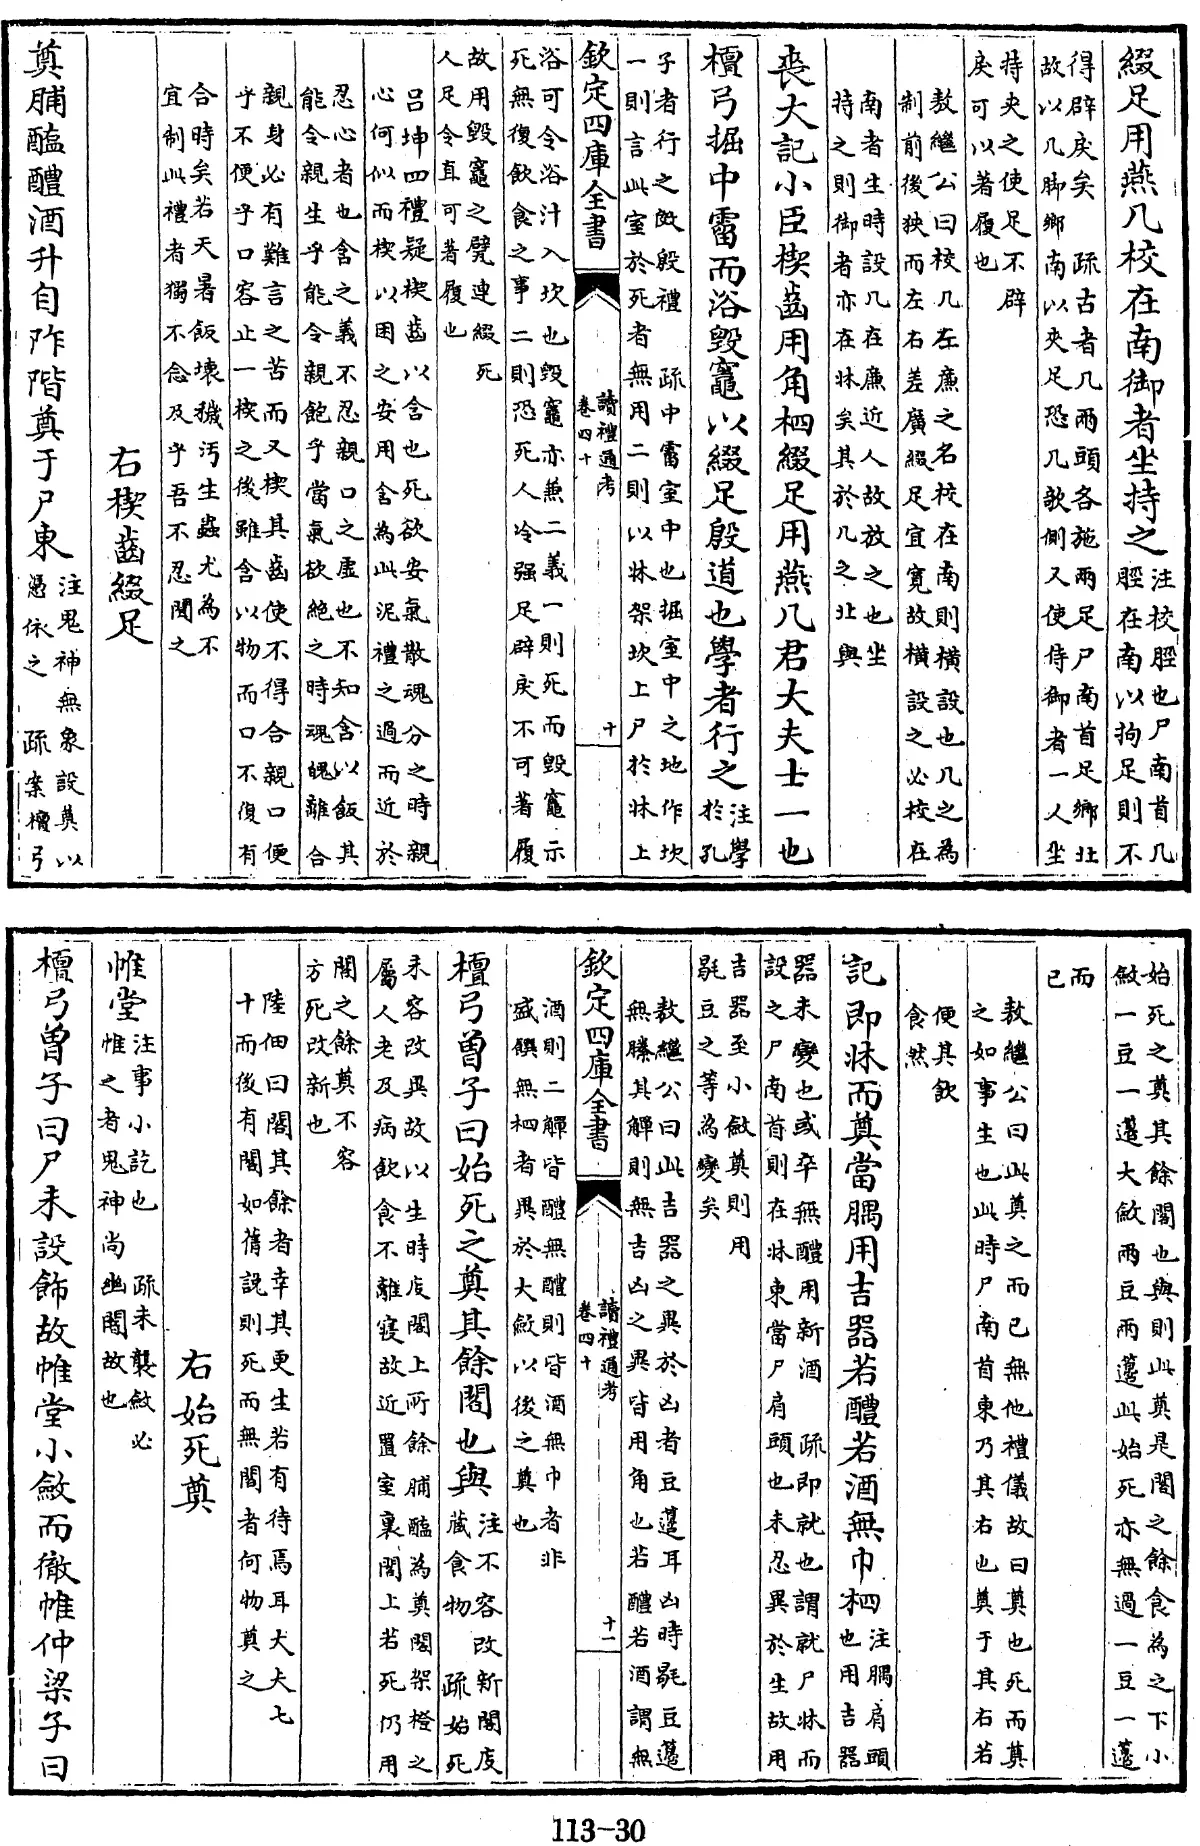 綴足用燕几校在南御者坐持之注校脛也尸南首几
脛在南以拘足則不
得辟戾矣 疏古者几兩頭各施兩足尸南首足鄉北
故以几脚鄉南以夾足恐几欹側又使侍御者一人坐
持夾之使足不辟
戾可以著屨也
敖繼公曰校几左廉之名校在南則橫設也几之為
制前後狹而左右差廣綴足宜寛故橫設之必校在
南者生時設几在廉近人故放之也坐
持之則御者亦在牀矣其於几之北與
喪大記小臣楔齒用角柶綴足用燕几君大夫士一也
檀弓掘中霤而浴毀竈以綴足殷道也學者行之注學
於孔
子者行之倣殷禮 疏中霤室中也掘室中之地作坎
一則言此室於死者無用二則以牀架坎上尸於牀上
欽定四庫全書
讀禮通考
卷四十
十
浴可令浴汁入坎也毀竈亦兼二義一則死而毀竈示
死無復飲食之事二則恐死人冷强足辟戾不可著屨
故用毀竈之甓連綴死
人足令直可著屨也
呂坤四禮疑楔齒以含也死欲安氣散魂分之時親
心何似而楔以困之安用含為此泥禮之過而近於
忍心者也含之義不忍親口之虛也不知含以飯其
能令親生乎能令親飽乎當氣欲絶之時魂魄離合
親身必有難言之苦而又楔其齒使不得合親口便
乎不便乎口容止一楔之後雖含以物而口不復有
合時矣若天暑飯壊穢汚生蟲尤為不
宜制此禮者獨不念及乎吾不忍聞之
右楔齒綴足
奠脯醢醴酒升自阼階奠于尸東注鬼神無象設奠以
憑依之 疏案檀弓
始死之奠其餘閣也與則此奠是閣之餘食為之下小
斂一豆一籩大斂兩豆兩籩此始死亦無過一豆一籩
而
已
敖繼公曰此奠之而已無他禮儀故曰奠也死而奠
之如事生也此時尸南首東乃其右也奠于其右若
便其飲
食然
記即牀而奠當腢用吉器若醴若酒無巾柶注腢肩頭
也用吉器
器未變也或卒無醴用新酒 疏即就也謂就尸牀而
設之尸南首則在牀東當尸肩頭也未忍異於生故用
吉器至小斂奠則用
毼豆之等為變矣
敖繼公曰此吉器之異於凶者豆籩耳凶時毼豆籩
無縢其觶則無吉凶之異皆用角也若醴若酒謂無
欽定四庫全書
讀禮通考
卷四十
十一
酒則二觶皆醴無醴則皆酒無巾者非
盛饌無柶者異於大斂以後之奠也
檀弓曾子曰始死之奠其餘閣也與注不容改新閣庋
藏食物 疏始死
未容改異故以生時庋閣上所餘脯醢為奠閣架橙之
屬人老及病飲食不離寢故近置室裏閣上若死仍用
閣之餘奠不容
方死改新也
陸佃曰閣其餘者幸其更生若有待焉耳大夫七
十而後有閣如舊説則死而無閣者何物奠之
右始死奠
帷堂注事小訖也 疏未襲斂必
帷之者鬼神尚幽闇故也
檀弓曾子曰尸未設飾故帷堂小斂而徹帷仲梁子曰
113-30